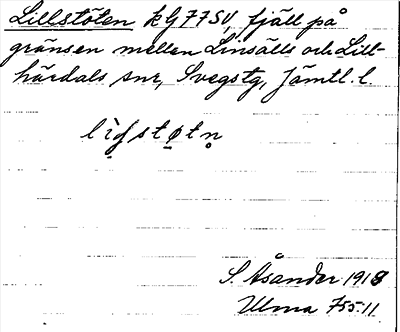 Lillstöten kLj77SV, fjäll på
gränsen mellen Linsälls och Lill-
härdals snr, Svegstg, Jämtl. l
S. Åsander 1918
Ulma 755:11